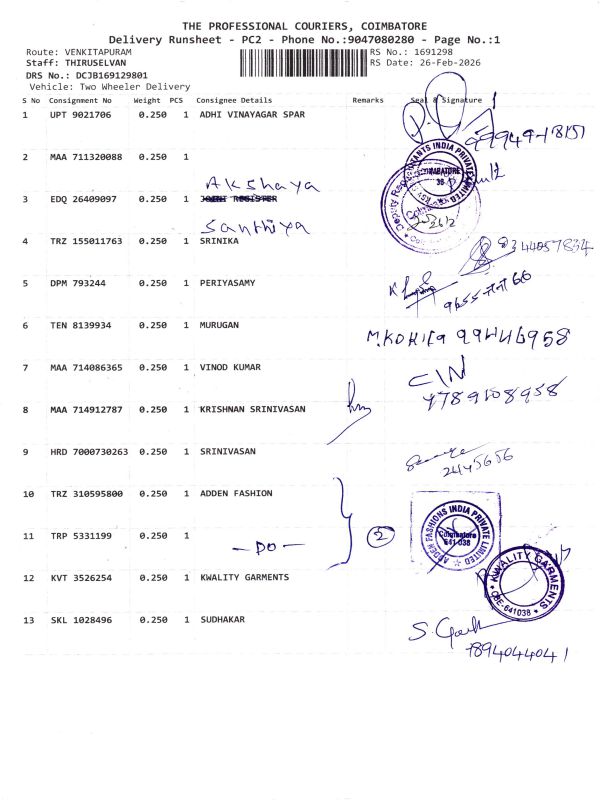 THE PROFESSIONAL COURIERS, COIMBATORE
Delivery Runsheet - PC2 - Phone No.:9047080280 - Page No.:1
Route: VENKITAPURAM
RS No.: 1691298
Staff: THIRUSELVAN
RS Date: 26-Feb-2026
DRS No.: DCJB169129801
Vehicle: Two Wheeler Delivery
S No Consignment No Weight PCS Consignee Details Remarks Seal & Signature
1 UPT 9021706 0.250 1 ADHI VINAYAGAR SPAR
2 MAA 711320088 0.250 1
Akshaya
3 EDQ 26409097 0.250 1
Santhiya
4 TRZ 155011763 0.250 1 SRINIKA
5 DPM 793244 0.250 1 PERIYASAMY
6 TEN 8139934 0.250 1 MURUGAN
7 MAA 714086365 0.250 1 VINOD KUMAR
8 MAA 714912787 0.250 1 KRISHNAN SRINIVASAN
9 HRD 7000730263 0.250 1 SRINIVASAN
10 TRZ 310595800 0.250 1 ADDEN FASHION
11 TRP 5331199 0.250 1
- DO -
2
ADDEN FASHIONS INDIA PRIVATE LIMITED
Coimbatore
641 038
12 KVT 3526254 0.250 1 KWALITY GARMENTS
KWALITY GARMENTS
CBE-641038
13 SKL 1028496 0.250 1 SUDHAKAR
7894044041